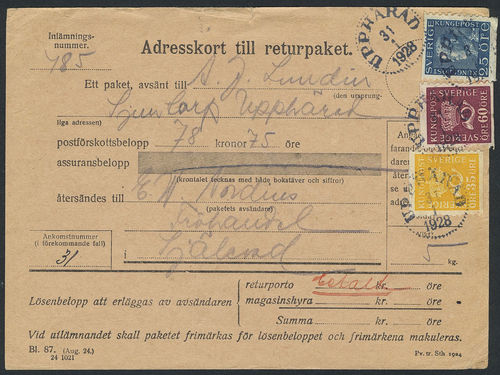 Inlämnings-
nummer.
485
Adresskort till returpaket.
UPPHÄRAD
31
1928
SVERIGE KUNGL·POST
25 ÖRE
Ett paket, avsänt till A. J. Lundin
(den ursprung-
Upphärad
liga adressen)
KUNGL·POST SVERIGE
60 ÖRE
postförskottsbelopp 78 kronor 75 öre
assuransbelopp
(krontalet tecknas med både bokstäver och siffror)
KUNGL·POST SVERIGE
35 ÖRE
återsändes till E.
(paketets avsändare)
UPPHÄRAD
1928
Ankomstnummer
(i förekommande fall)
31
i
5 kg.
Lösenbelopp att erläggas av avsändaren
returporto kr. öre
magasinshyra kr. öre
Summa kr. öre
Vid utlämnandet skall paketet frimärkas för lösenbeloppet och frimärkena makuleras.
Bl. 87. (Aug. 24.)
24 1021
Pv. tr. Sth 1924